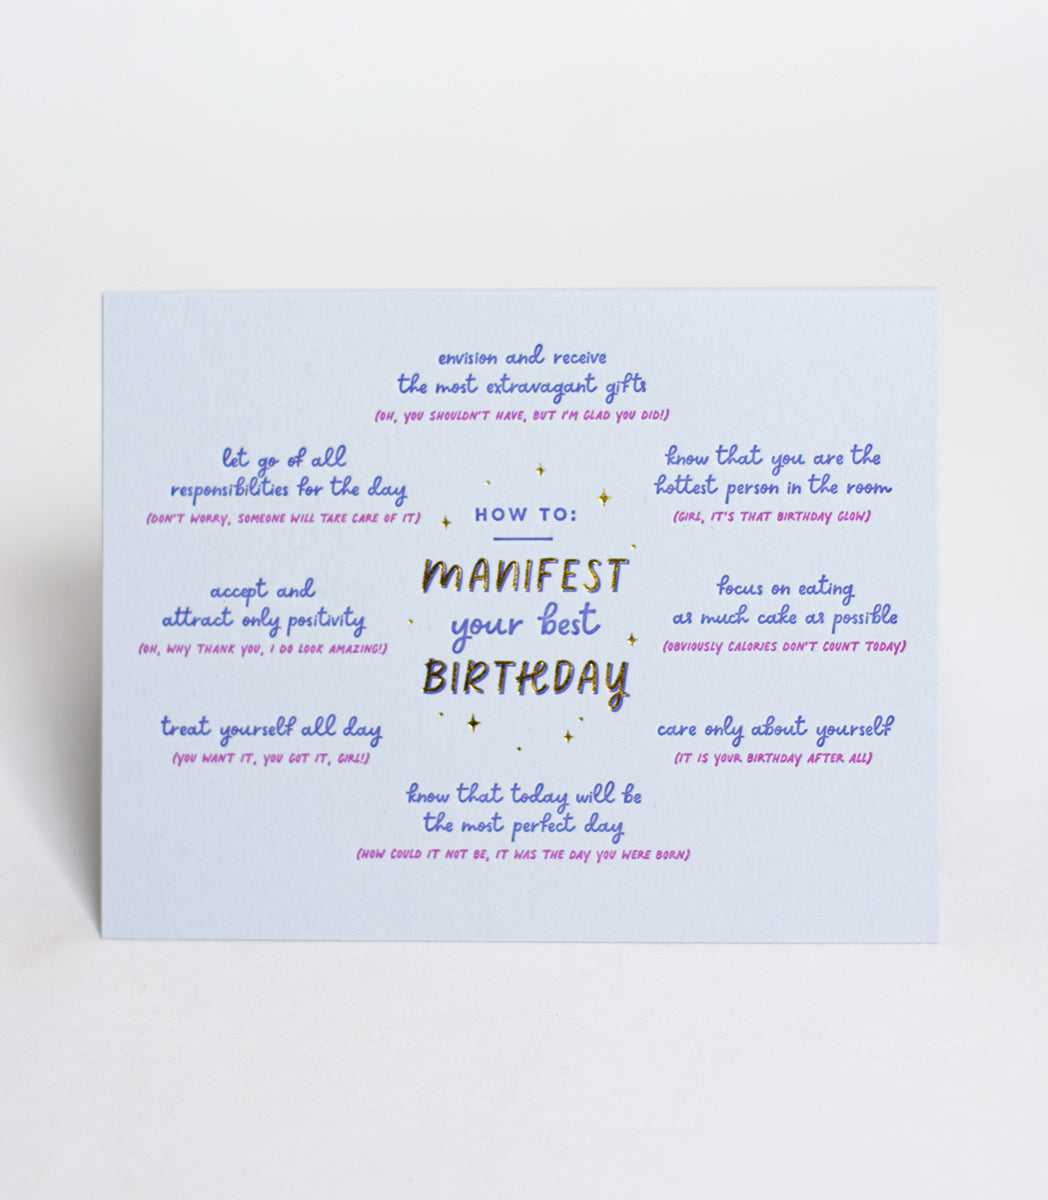 envision and receive
the most extravagant gifts
(OH, YOU SHOULDN'T HAVE, BUT I'M GLAD YOU DID!)
let go of all
responsibilities for the day
(DON'T WORRY, SOMEONE WILL TAKE CARE OF IT)
know that you are the
hottest person in the room
(GIRL, IT'S THAT BIRTHDAY GLOW)
HOW TO:
MANIFEST
your best
BIRTHDAY
accept and
attract only positivity
(OH, WHY THANK YOU, I DO LOOK AMAZING!)
focus on eating
as much cake as possible
(OBVIOUSLY CALORIES DON'T COUNT TODAY)
treat yourself all day
(YOU WANT IT, YOU GOT IT, GIRL!)
care only about yourself
(IT IS YOUR BIRTHDAY AFTER ALL)
know that today will be
the most perfect day
(HOW COULD IT NOT BE, IT WAS THE DAY YOU WERE BORN)